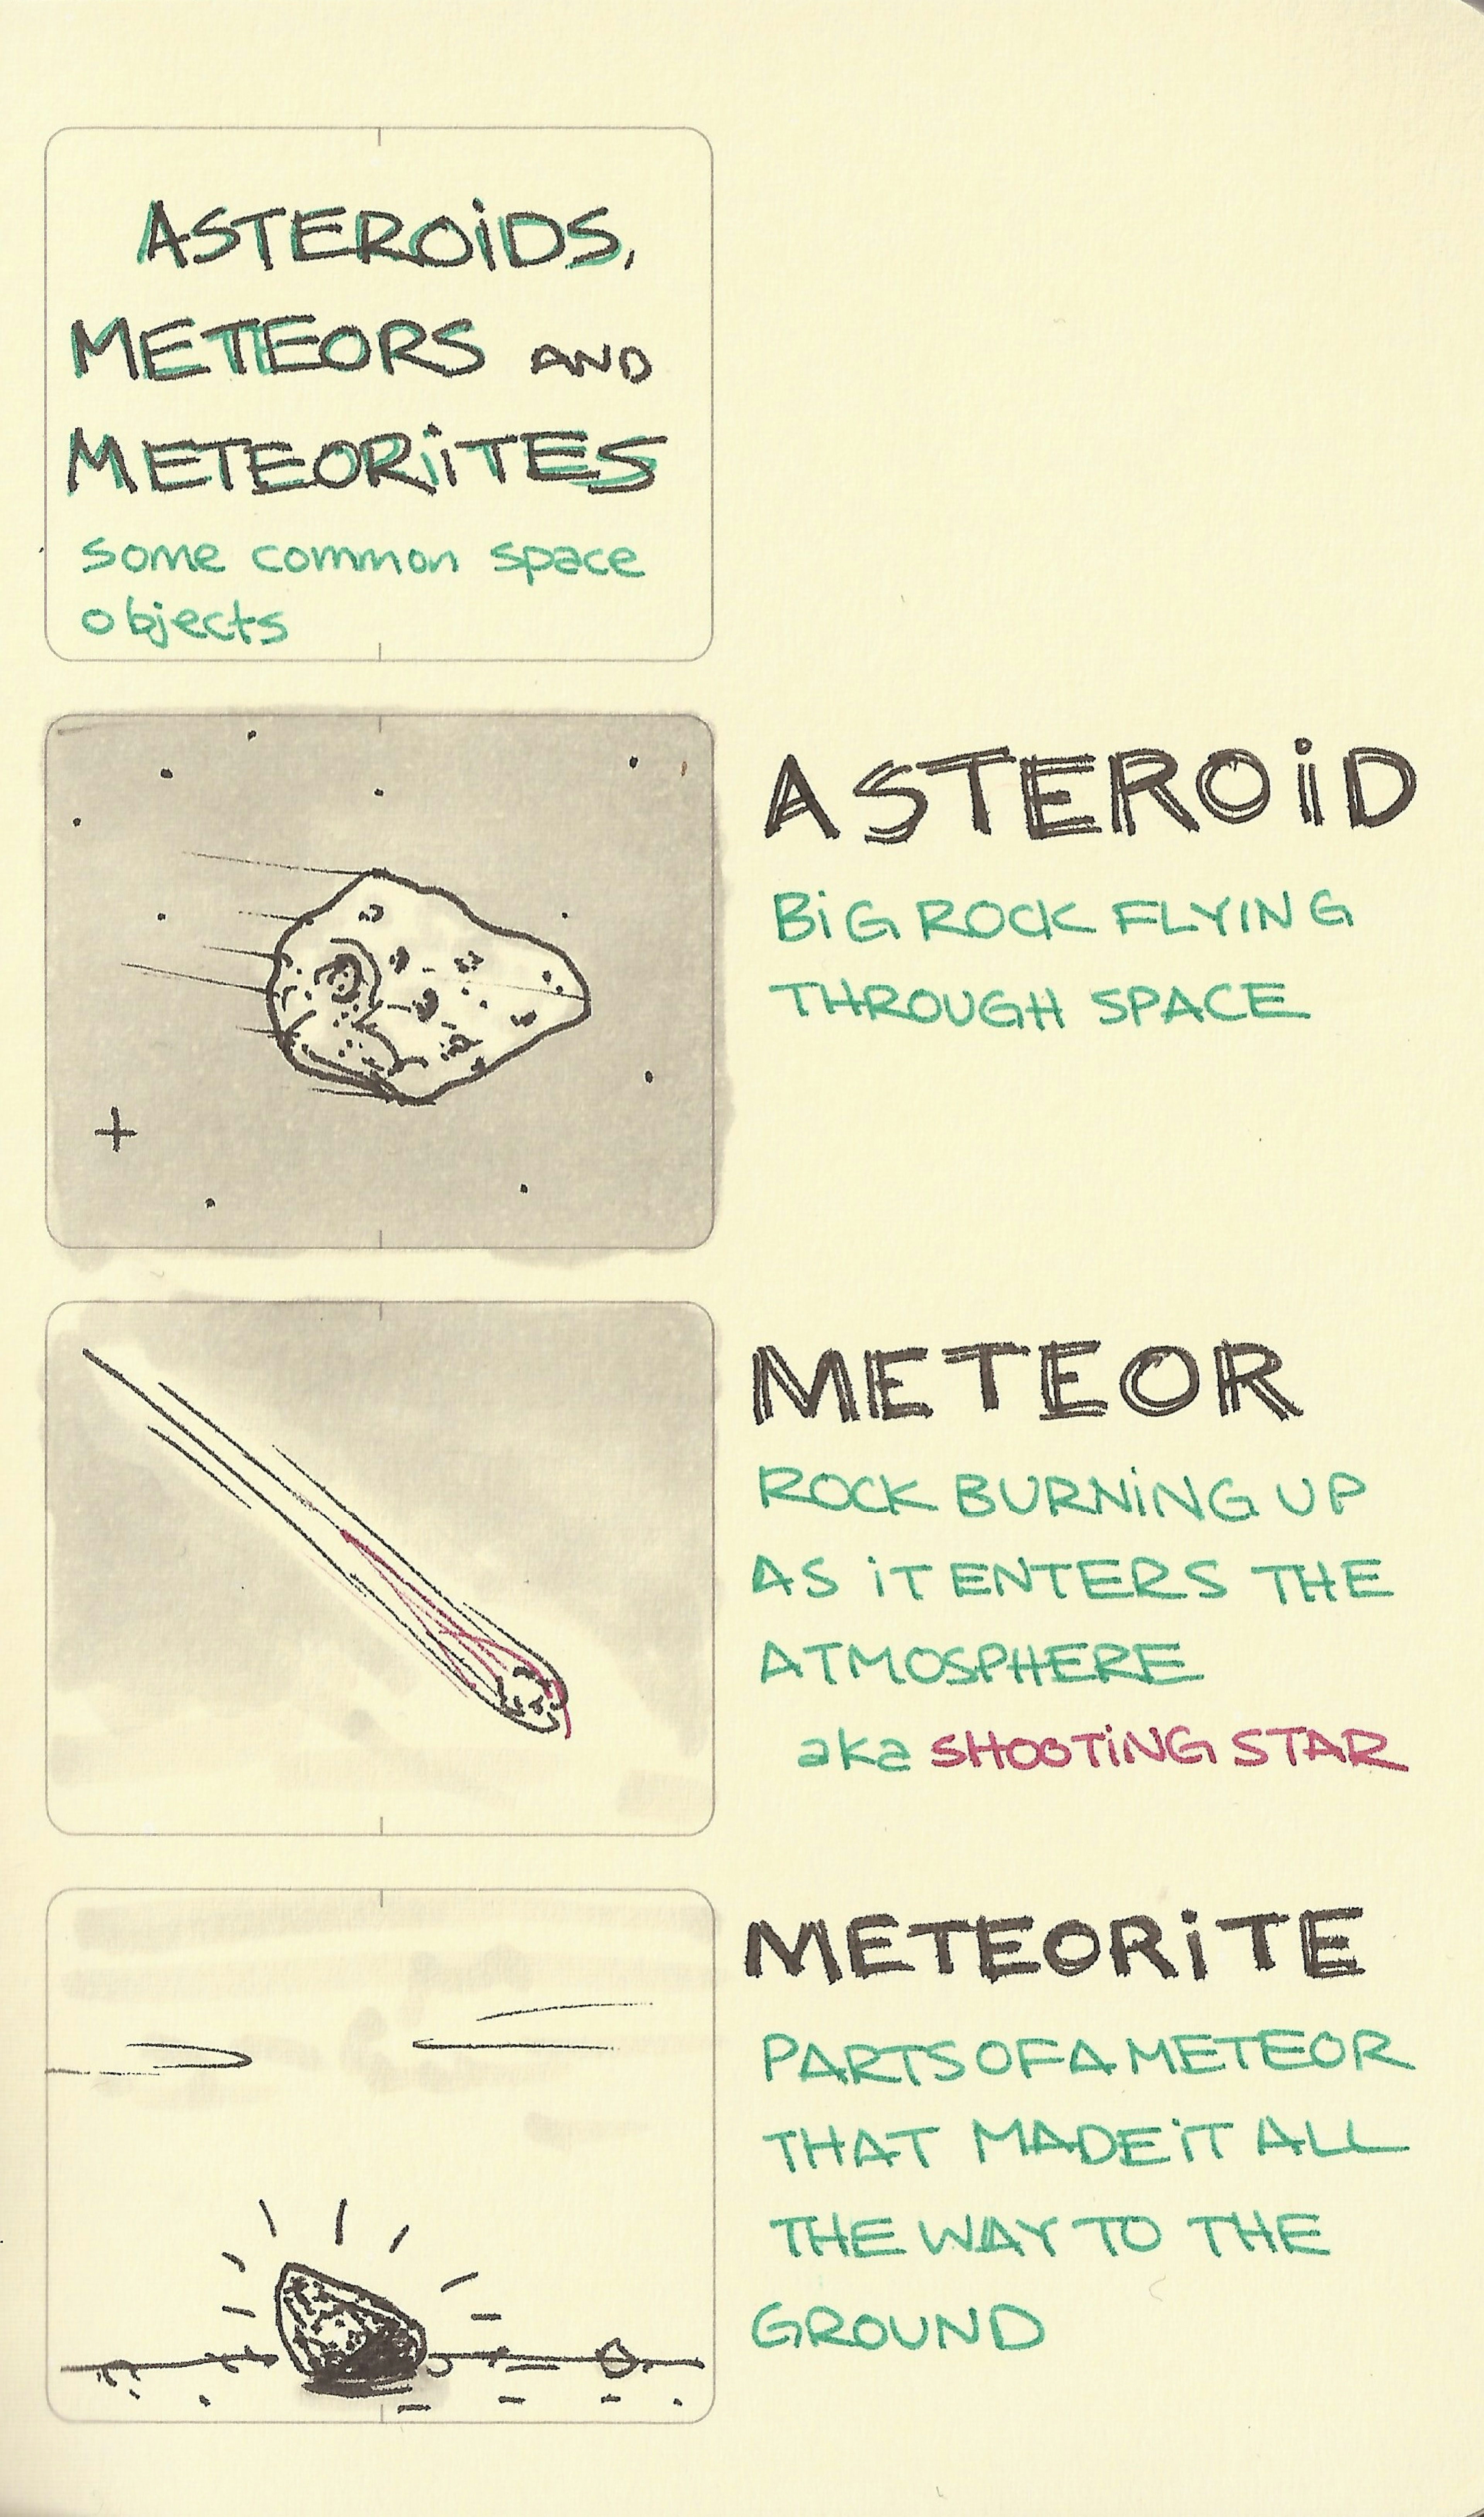 ASTEROiDS,
METEORS AND
METEORiTES
some common space
objects
ASTEROiD
BiG ROCK FLYING
THROUGH SPACE
METEOR
ROCK BURNiNG UP
AS iT ENTERS THE
ATMOSPHERE
aka SHOOTiNG STAR
METEORiTE
PARTS OF A METEOR
THAT MADE iT ALL
THE WAY TO THE
GROUND